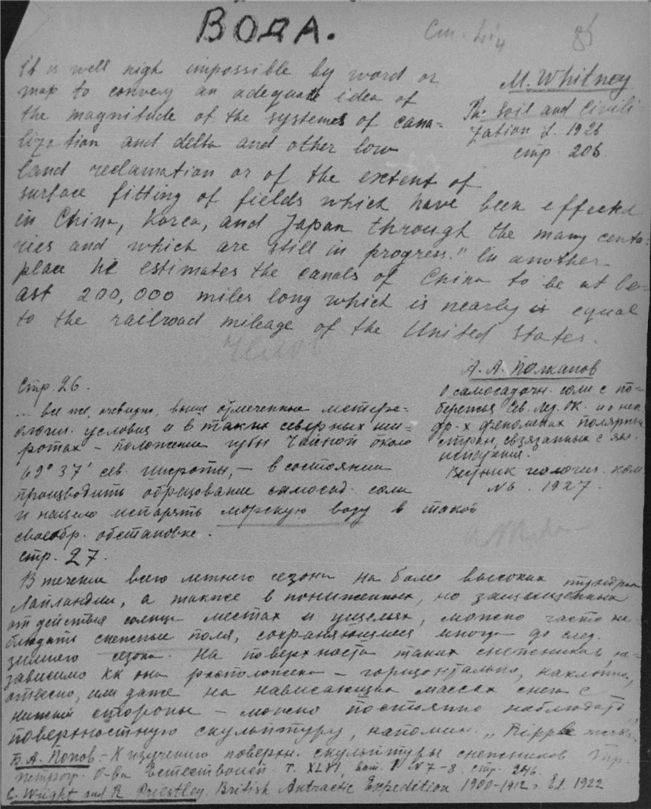 Вода.
It is well nigh impossible by word or
map to convey an adequate idea of
the magnitude of the systems of cana-
lization and delta and other low
land reclamation or of the extent of
surface fitting of fields which have been effected
in China, Korea, and Japan through the many centu-
ries and which are still in progress." In another
place he estimates the canals of China to be at le-
ast 200,000 miles long which is nearly is equal
to the railroad mileage of the United States.
M. Whitney
Soil and Civili-
zation 1926
стр. 206.
Стр. 26.
... все же, очевидно, выше отмеченные метеоро-
логич. условия и в таких северных ши-
ротах – положении губы Чайной около
69° 37' сев. широты, – в состоянии
производить образование самосад. соли
и нацело испарять морскую воду в такой
своеобр. обстановке.
А. А. Полканов
О самосадочн. соли с по-
бережья Сев. Лед. Ок. и о нек
феноменах полярных
стран, связанных с
испарения.
Вестник геологич. ком.
№ 6. 1927.
стр. 27.
В течении всего летнего сезона на более высоких тундрах
Лапландии, а также в пониженных, но защищенных
от действия солнца местах и ущельях, можно часто на-
блюдать снежные поля, сохраняющиеся иногда до след.
зимнего сезона. На поверхности таких снежников, не-
зависимо как она расположена – горизонтально, наклонно,
отвесно, или даже на нависающих массах снега с
нижней стороны – можно постоянно наблюдать
поверхностную скульптуру, напомин. „Ripple
Б. А. Попов – К изучению поверхн. скульптуры снежников
Петрогр. О-ва Естествоисп. т. XLVI, № 7–8. стр. 246.
C. Wright and R. Priestley. British Antarctic Expedition Ed. 1922